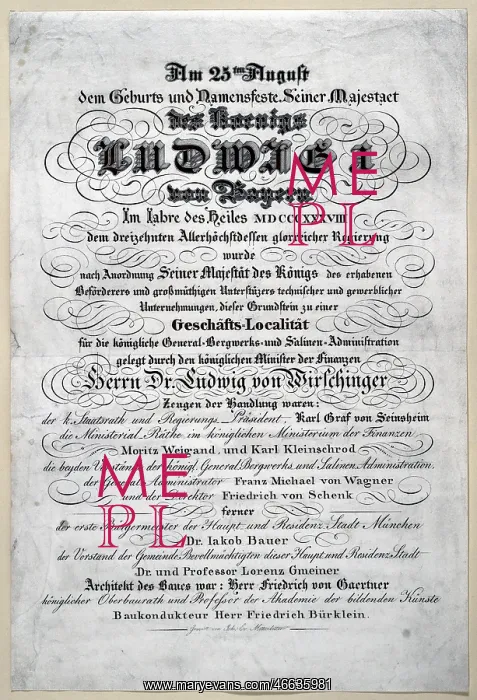 Am 25ten August
dem Geburts und Namensfeste Seiner Majestaet
des Koenigs
LUDWIG I
von Bayern
Im Jahre des Heiles MDCCCXXXVIII
dem dreizehnten Allerhöchstdessen glorreicher Regierung
wurde
nach Anordnung Seiner Majestät des Königs des erhabenen
Beförderers und großmüthigen Unterstüzers technischer und gewerblicher
Unternehmungen, dieser Grundstein zu einer
Geschäfts-Localität
für die königliche General-Bergwerks- und Salinen-Administration
gelegt durch den königlichen Minister der Finanzen
Herrn Dr. Ludwig von Wirschinger
Zeugen der Handlung waren:
der k. Staatsrath und Regierungs-Präsident, Karl Graf von Seinsheim
die Ministerial Räthe im königlichen Ministerium der Finanzen
Moritz Weigand, und Karl Kleinschrod
die beyden Vorstände der königl. General Bergwerks, und Salinen Administration,
der General Administrator Franz Michael von Wagner
und der Direktor Friedrich von Schenk
ferner
der erste Bürgermeister der Haupt und Residenz Stadt München
Dr. Jakob Bauer
der Vorstand der Gemeinde Bevollmächtigten dieser Haupt und Residenz Stadt
Dr. und Professor Lorenz Gmeiner
Architekt des Baues war: Herr Friedrich von Gaertner
königlicher Oberbaurath und Professor der Akademie der bildenden Künste
Baukondukteur Herr Friedrich Bürklein.
ME
PL
ME
PL
www.maryevans.com/46635981